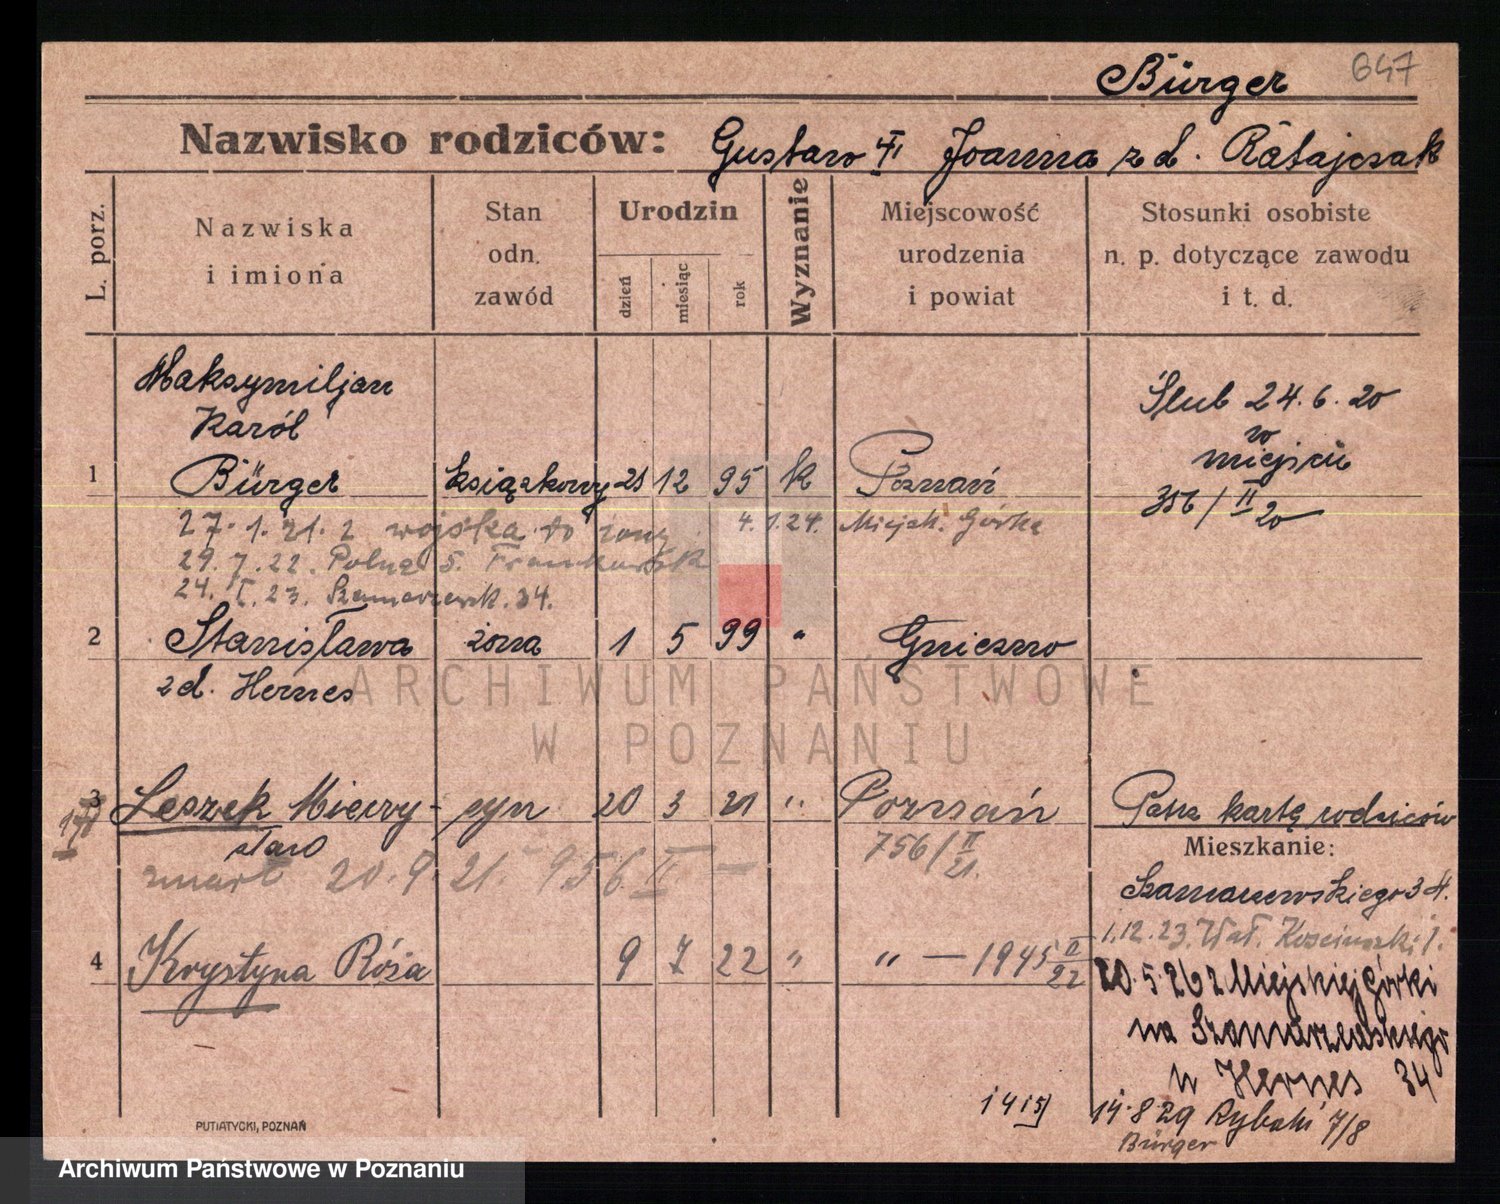 Bürger 647
Nazwisko rodziców: Gustaw Joanna z d. Ratajczak
L. porz.
Nazwiska
i imiona
Stan
odn.
zawód
Urodzin
dzień
miesiąc
rok
Wyznanie
Miejscowość
urodzenia
i powiat
Stosunki osobiste
n. p. dotyczące zawodu
i t. d.
Maksymiljan
Karól
1 Bürger książkowy 21 12 95 k Poznań
Ślub 24.6.20
w
miejscu
356/II 20
27.1.21. z wojska do żony 4.1.24. Miejsk. Górka
29.7.22. Polna 5.
24. I. 23. Szamarzewsk. 34.
2 Stanisława żona 1 5 99 " Gniezno
z d. Hernes
ARCHIWUM PAŃSTWOWE
W POZNANIU
3 Leszek Mieczy- syn 20 3 21 " Poznań
sław
756/II 21.
zmarł 20.9.21 956 II
Patrz kartę rodziców
Mieszkanie:
Szamarzewskiego 34.
1.12.23.
4 Krystyna Róża 9 7 22 " " — 1945 II 22
20.5.26 z Miejskiej Górki
na Szamarzewskiego
w Hernes 34
1415
14.8.29 Rybaki 7/8
Bürger
PUTIATYCKI, POZNAŃ
Archiwum Państwowe w Poznaniu